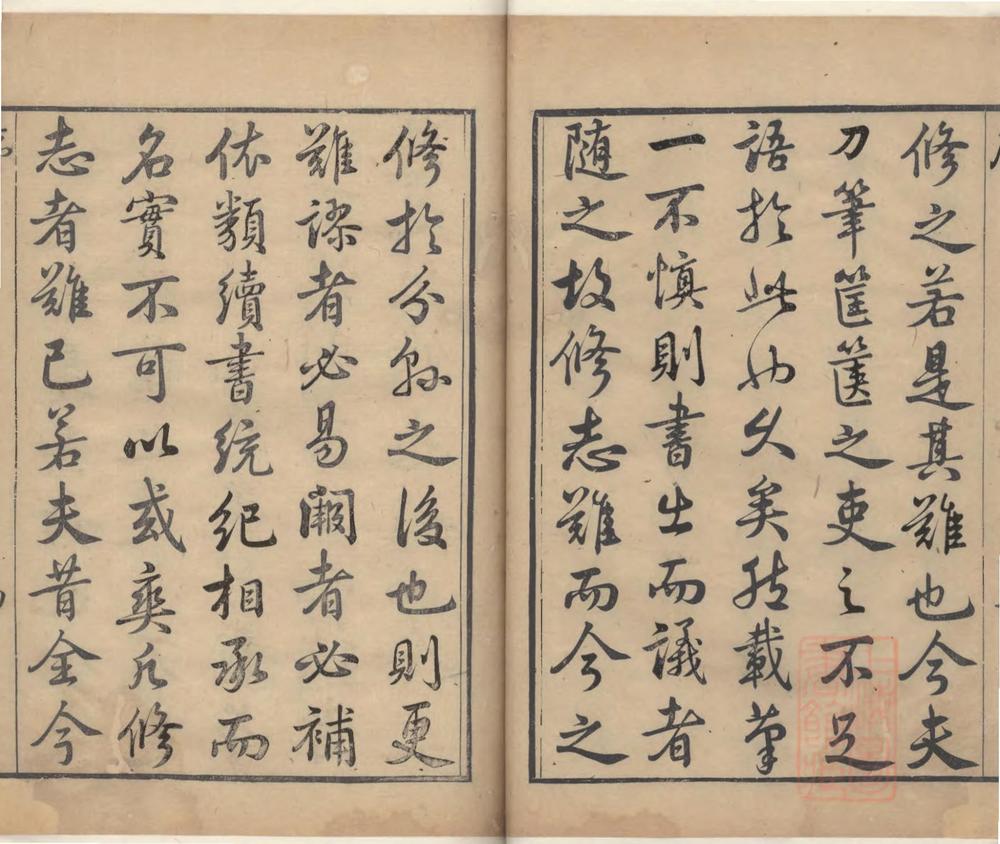 修之若是其難也今夫
刀筆筐篋之吏之不足
語於此也久矣然載筆
一不慎則書出而議者
隨之故修志難而今之
修於分縣之後也則更
難謬者必易闕者必補
依類續書統紀相承而
名實不可以或爽凡修
志者難已若夫昔全今